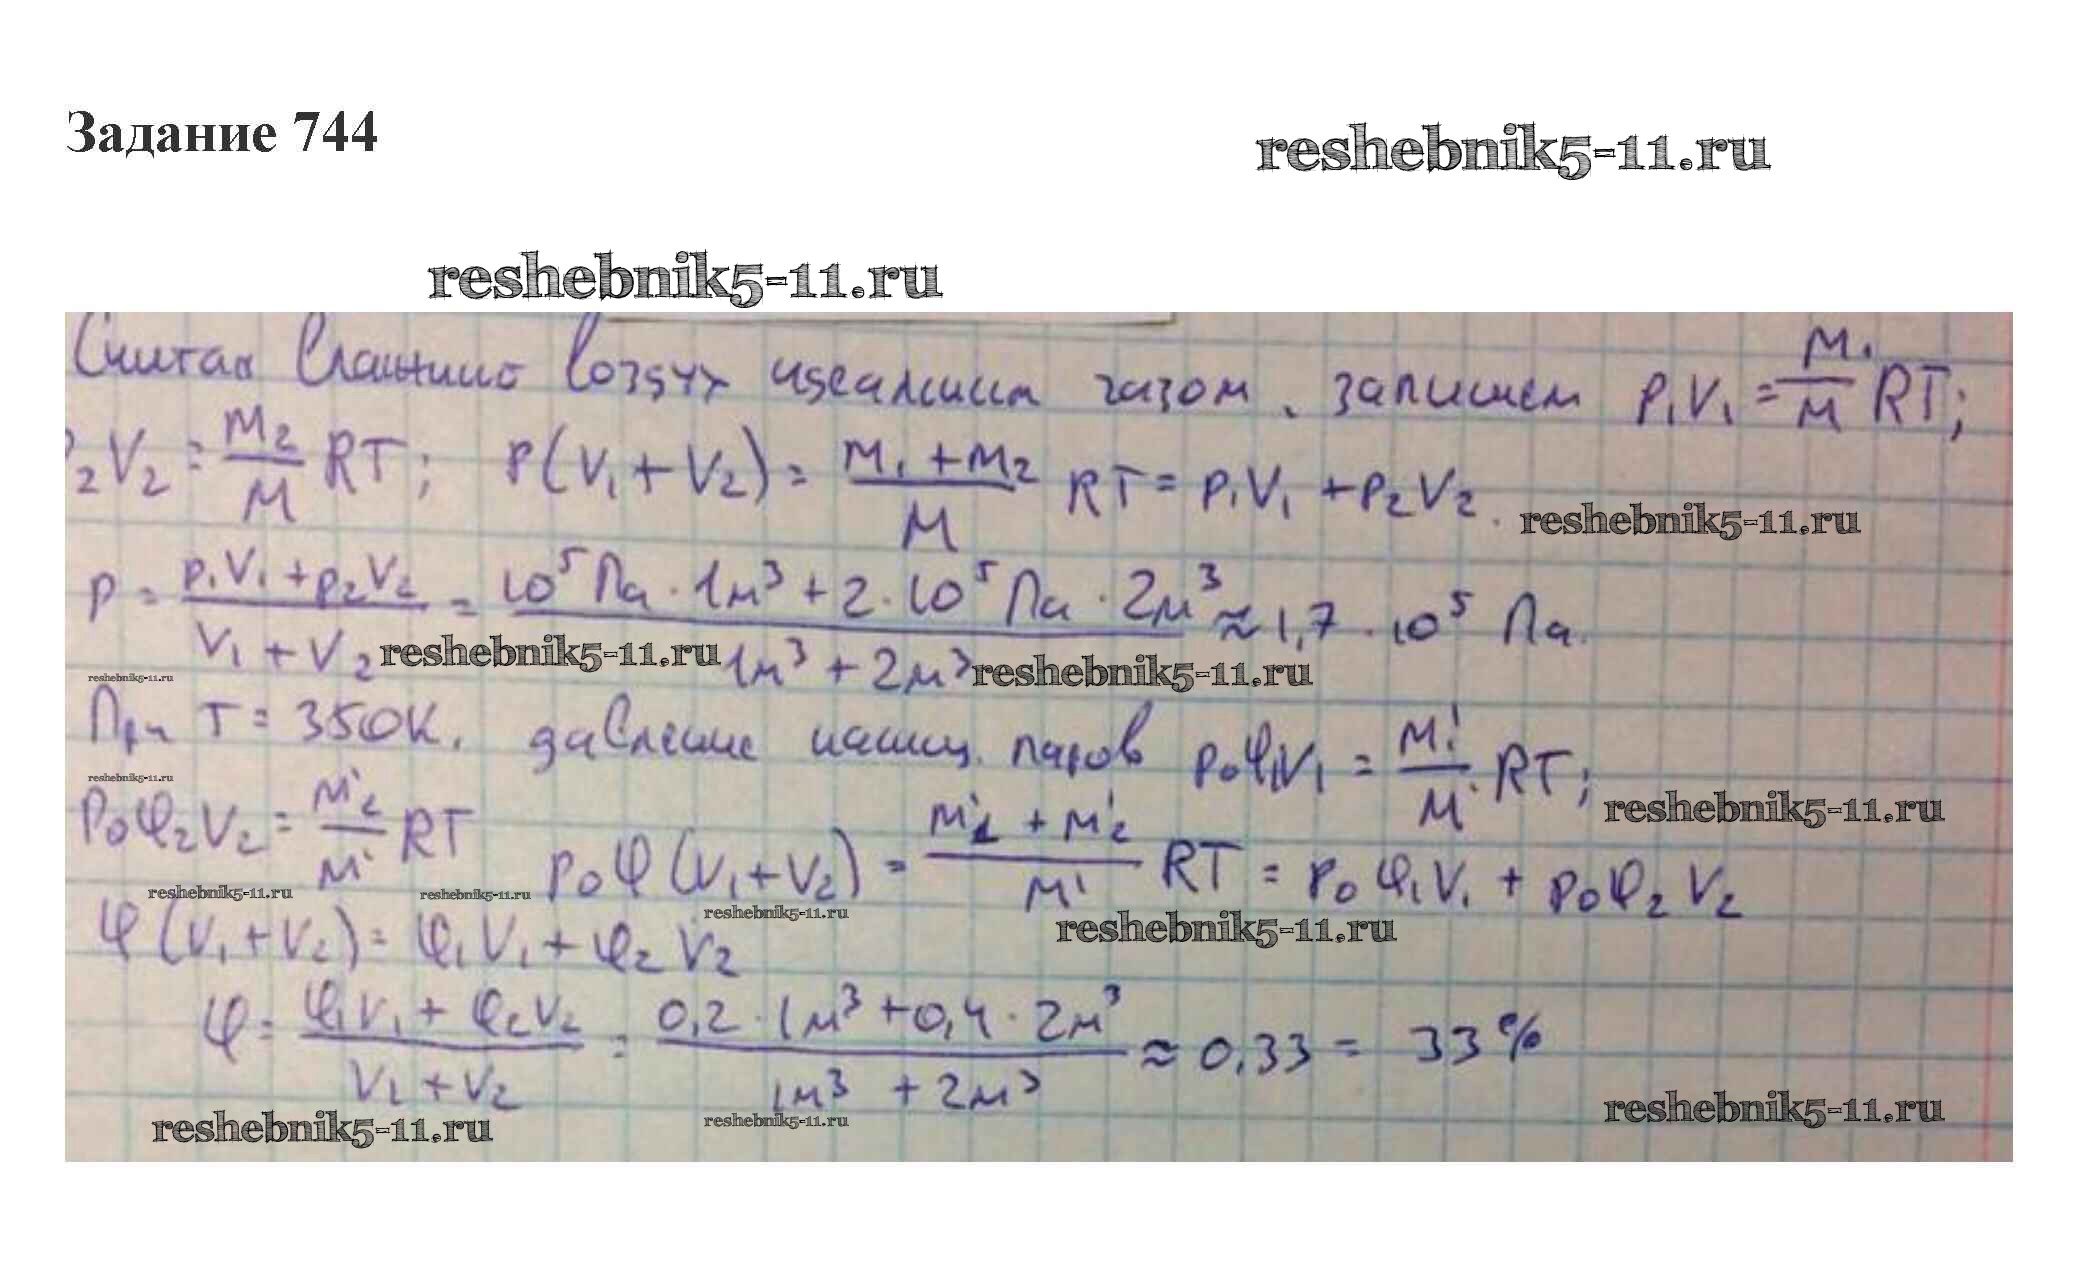 Задание 744
reshebnik5-11.ru
reshebnik5-11.ru
Считая влажный воздух идеальным газом, запишем p₁V₁ = m₁/M RT;
p₂V₂ = m₂/M RT; p(V₁ + V₂) = (m₁ + m₂)/M RT = p₁V₁ + p₂V₂. reshebnik5-11.ru
p = (p₁V₁ + p₂V₂)/(V₁ + V₂) = (10⁵ Па · 1м³ + 2 · 10⁵ Па · 2м³)/(1м³ + 2м³) ≈ 1,7 · 10⁵ Па.
reshebnik5-11.ru reshebnik5-11.ru
reshebnik5-11.ru
При T = 350К, давление насыщ. паров p₀φ₁V₁ = m₁'/M' RT;
reshebnik5-11.ru
p₀φ₂V₂ = m₂'/M' RT p₀φ(V₁ + V₂) = (m₁' + m₂')/M' RT = p₀φ₁V₁ + p₀φ₂V₂
reshebnik5-11.ru
reshebnik5-11.ru reshebnik5-11.ru reshebnik5-11.ru reshebnik5-11.ru
φ(V₁ + V₂) = φ₁V₁ + φ₂V₂
φ = (φ₁V₁ + φ₂V₂)/(V₁ + V₂) = (0,2 · 1м³ + 0,4 · 2м³)/(1м³ + 2м³) ≈ 0,33 = 33%
reshebnik5-11.ru reshebnik5-11.ru reshebnik5-11.ru